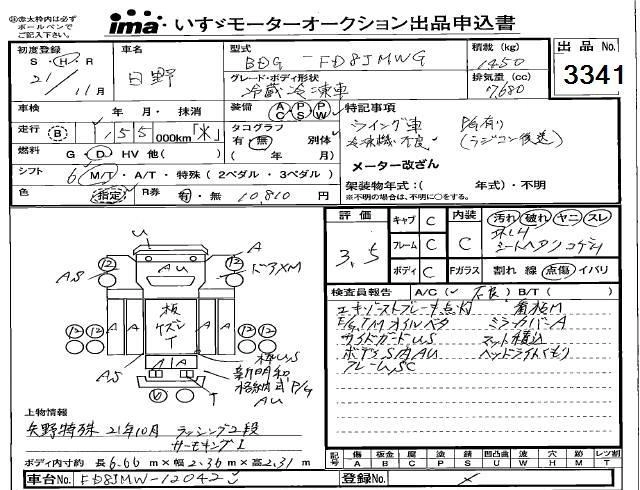 ㊟赤太枠内は必ず
ボールペンで
ご記入下さい。
ima・いすゞモーターオークション出品申込書
初度登録 S・H・R 21/11月
車名 日野
型式 BDG-FD8JMWG
積載(kg) 1450
出品No. 3341
グレード・ボディ形状 冷蔵冷凍車
排気量(cc) 7,680
車検 年 月・抹消
装備 AC PS PW
特記事項
走行 (B) 155000km「米」
タコグラフ 有・無 別体
( 年 月)
ウイング車 PG有り
冷凍機不良 (ラジコン後送)
メーター改ざん
燃料 G・D・HV 他( )
シフト 6 M/T・A/T・特殊(2ペダル・3ペダル)
架装物年式:( 年式)・不明
※不明の場合は、不明に○をする。
色 指定 R券 有・無 10,810円
評価 3.5
キャブ C 内装 C 汚れ 破れ ヤニ スレ
フレーム C
シートヘタリ コゲ
ボディ C Fガラス 割れ 線 点傷 イバリ
検査員報告 A/C(✓ 不良) B/T( )
エキゾーストブレーキ点灯 角板M
E/G,T/Mオイルベタ ミラーカバーA
サイドガードUS マット積込
ボディS内AU ヘッドライトくもり
フレームSC
U
A
12 12
AU
AS
ドアXM
板
ケズレ
T
A A A A
12 12
AS
枠US
新明和
格納式P/G
AU
A A
T
上物情報
矢野特殊 21年10月 ラッシング2段
サーモキング
ボディ内寸約 長6.66m×幅2.36m×高2.31m
記号 傷 板金 腐 塗 錆 凹凸曲 波 穴 跡 レンズ割
A B C P S U W H M T
車台No. FD8JMW-12042
登録No.